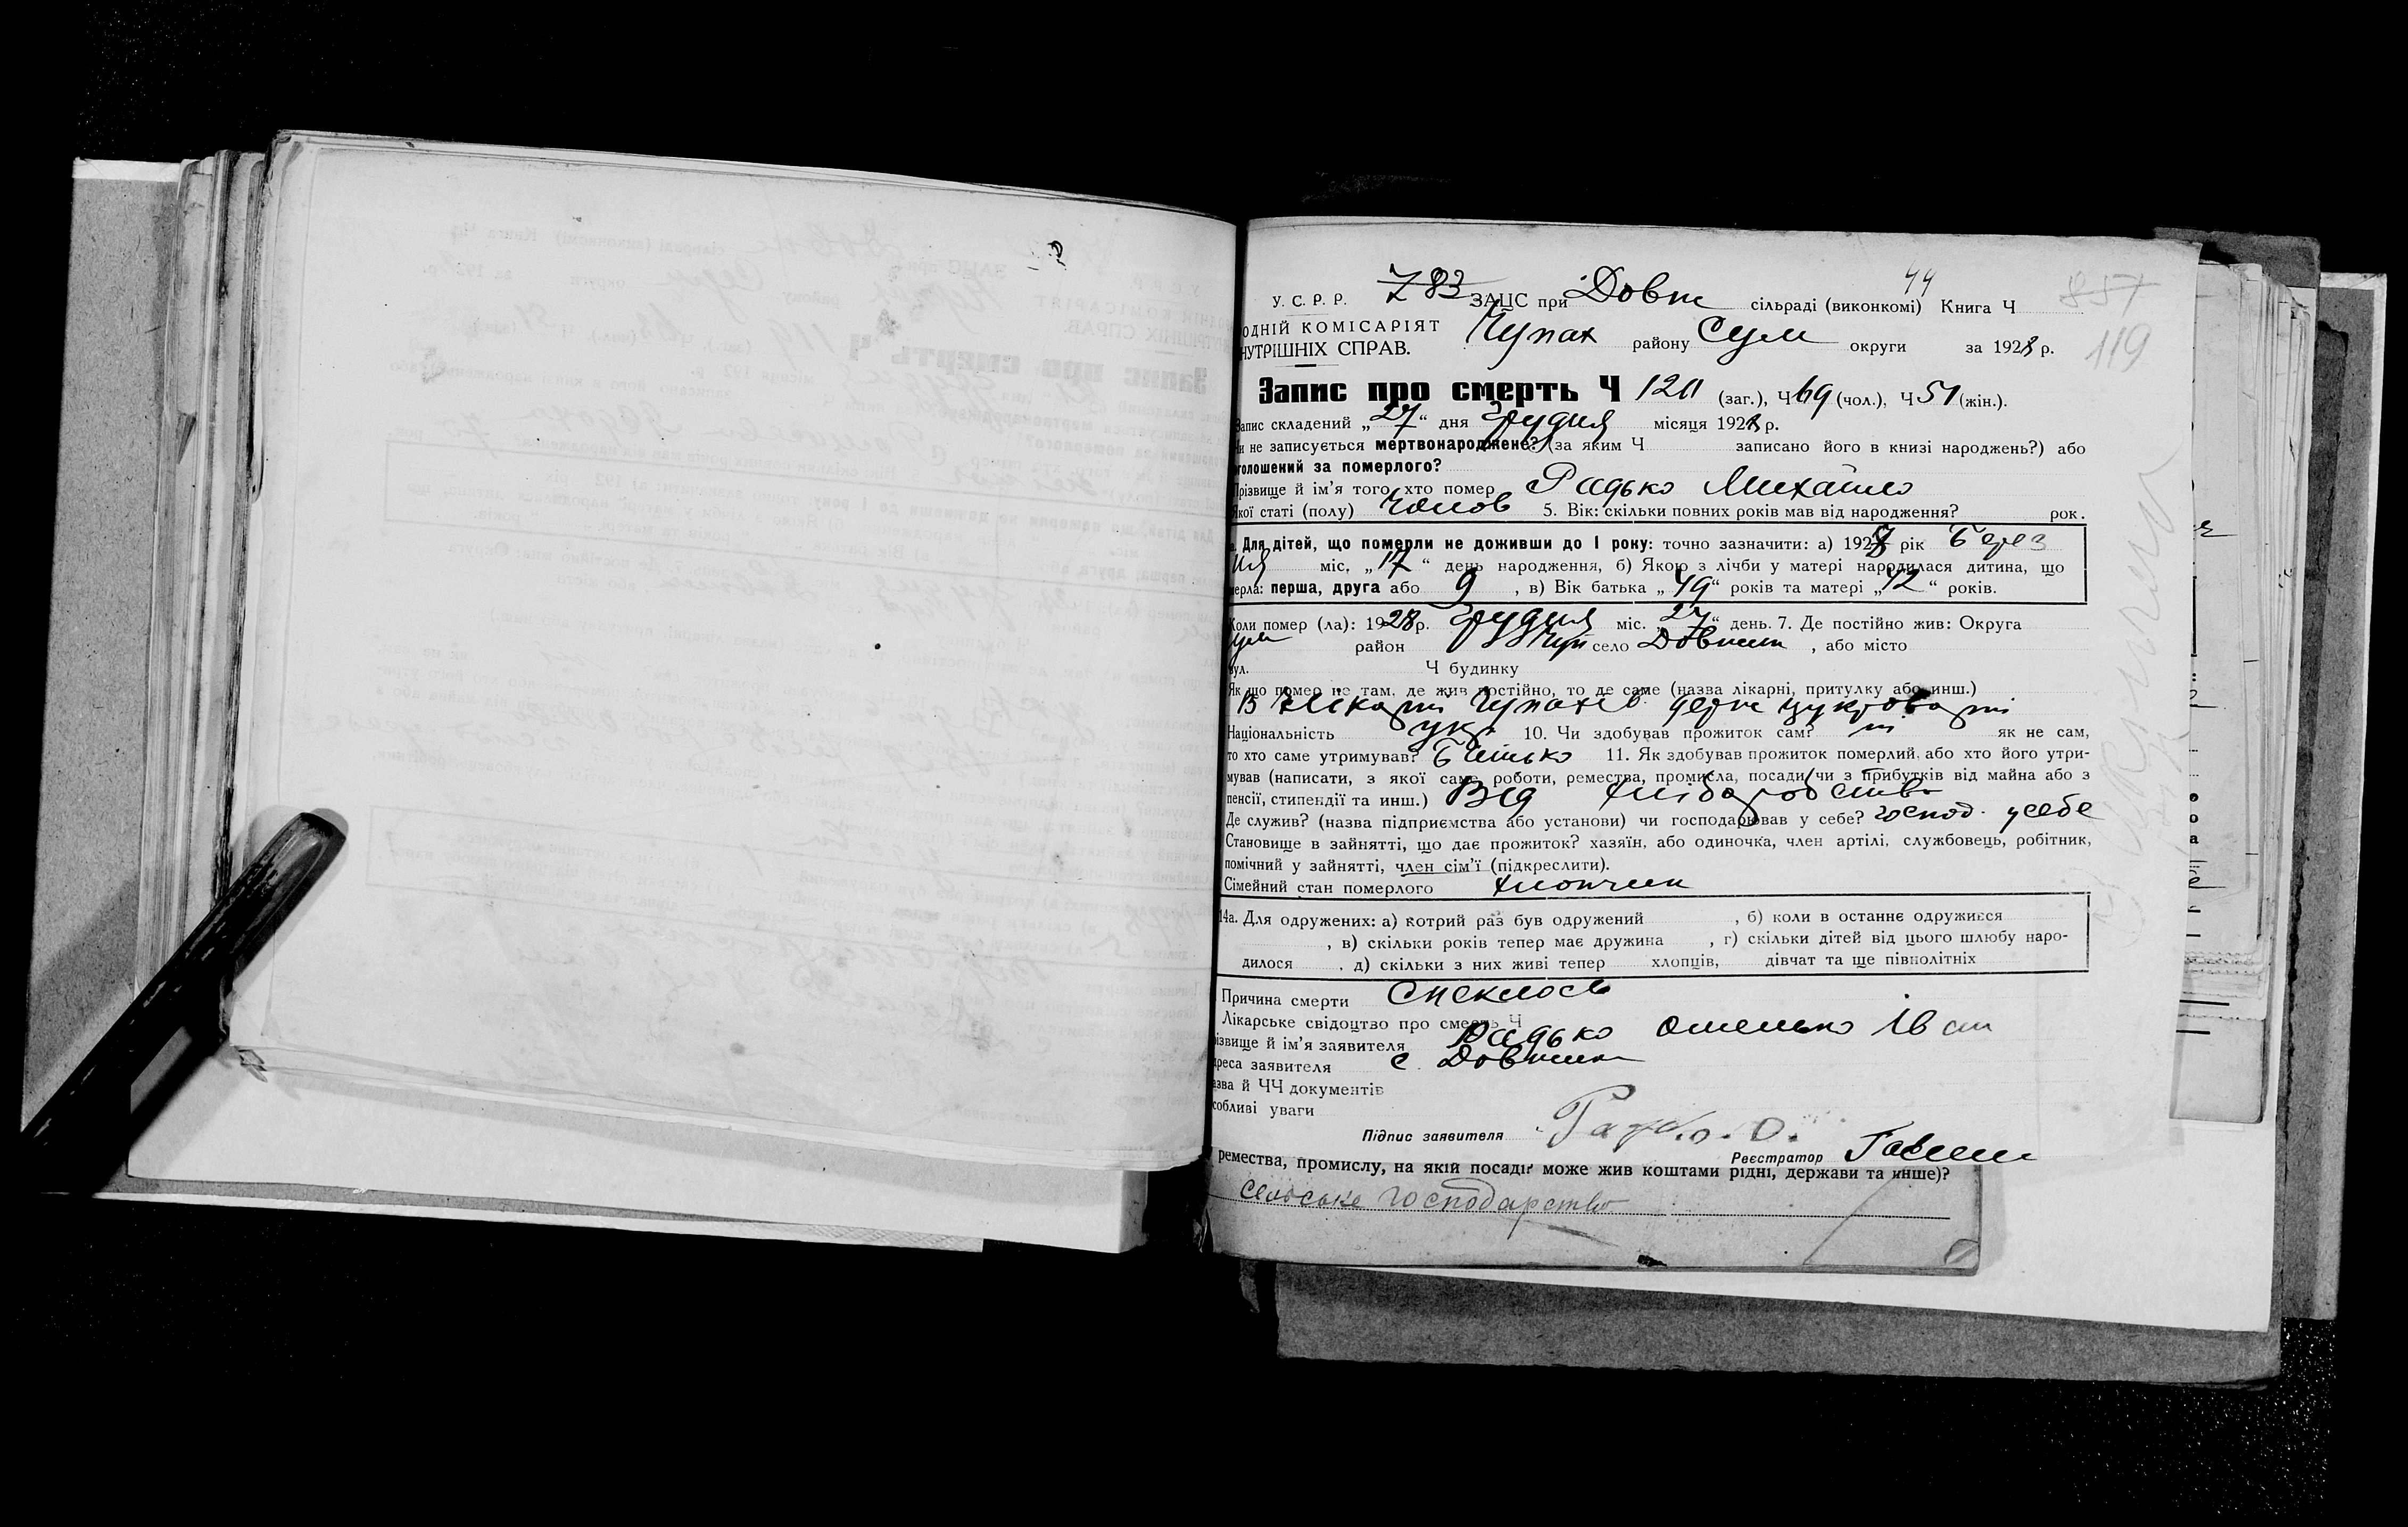 783
44
857
У. С. Р. Р. ЗАЦС при Довж сільраді (виконкомі) Книга Ч
119
ОДНІЙ КОМІСАРІЯТ Чупах району Сум округи за 1928 р.
НУТРІШНІХ СПРАВ.
Запис про смерть Ч 120 (заг.), Ч 69 (чол.), Ч 51 (жін.).
Запис складений „27“ дня Грудня місяця 1928 р.
Чи не записується мертвонароджене? (за яким Ч записано його в книзі народжень?) або
оголошений за померлого?
Прізвище й ім'я того, хто помер Радько Михайло
Якої статі (полу) чолов 5. Вік: скільки повних років мав від народження? рок.
Для дітей, що померли не доживши до 1 року: точно зазначити: а) 1928 рік Берез
ня міс. „17“ день народження, б) Якою з лічби у матері народилася дитина, що
мерла: перша, друга або 9, в) Вік батька „49“ років та матері „42“ років.
Коли помер (ла): 1928 р. Грудня міс. „27“ день. 7. Де постійно жив: Округа
Сум район Чуп село Довжик, або місто
вул. Ч будинку
Як що помер не там, де жив постійно, то де саме (назва лікарні, притулку або инш.)
В лікарні Чупахів. держ цукроварні
Національність укр 10. Чи здобував прожиток сам? ні як не сам,
то хто саме утримував? Батько 11. Як здобував прожиток померлий, або хто його утри-
мував (написати, з якої саме роботи, ремества, промисла, посади чи з прибутків від майна або з
пенсії, стипендії та инш.) Від хліборобства
Де служив? (назва підприємства або установи) чи господарював у себе? господ. у себе
Становище в зайнятті, що дає прожиток? хазяїн, або одиночка, член артілі, службовець, робітник,
помічний у зайнятті, член сім'ї (підкреслити).
Сімейний стан померлого хлопчик
14а. Для одружених: а) котрий раз був одружений , б) коли в останнє одружився
, в) скільки років тепер має дружина , г) скільки дітей від цього шлюбу наро-
дилося , д) скільки з них живі тепер хлопців, дівчат та ще півнолітніх
Причина смерти Спеклось
Лікарське свідоцтво про смерть Ч
ізвище й ім'я заявителя Радько Омелько Іван
дреса заявителя с. Довжик
азва й ЧЧ документів
собливі уваги
Підпис заявителя Радько. О.
Реєстратор
ремества, промислу, на якій посаді? може жив коштами рідні, держави та инше)?
сельське господарство